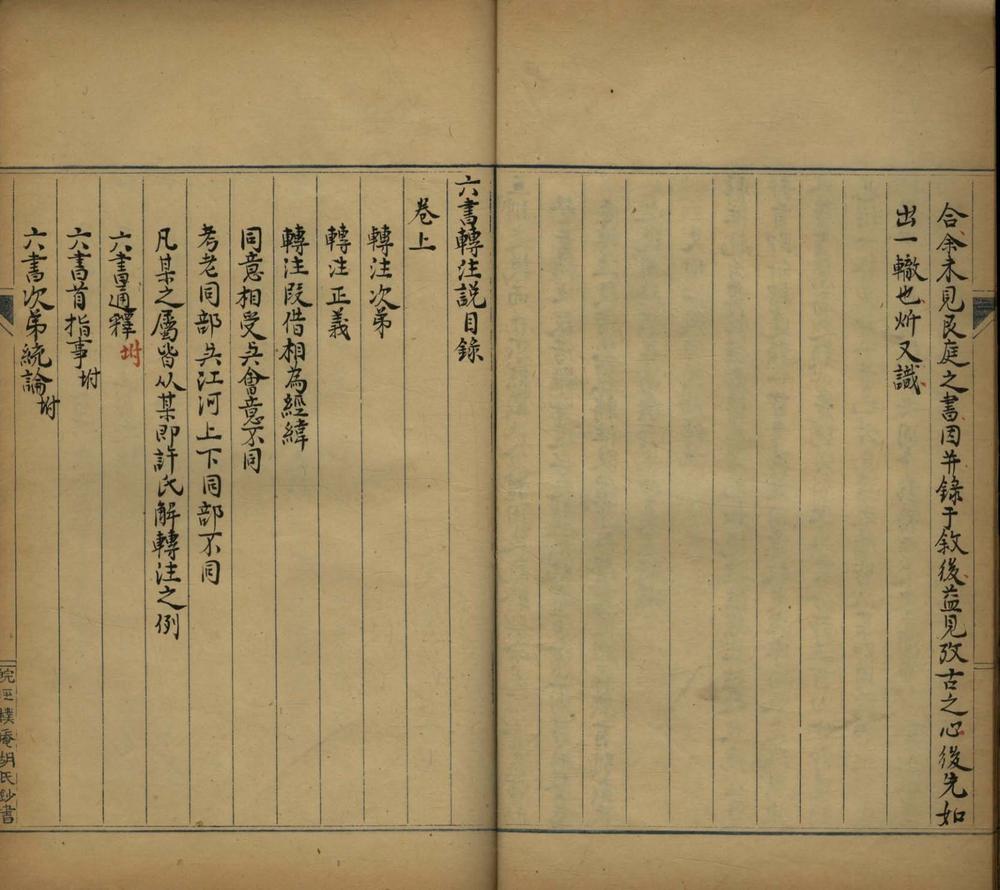 合余未見艮庭之書因并錄于敘後益見攷古之心後先如
出一轍也炘又識
六書轉注説目錄
卷上
轉注次弟
轉注正義
轉注叚借相為經緯
同意相受與會意不同
考老同部與江河上下同部不同
凡某之屬皆从某即許氏解轉注之例
六書通釋坿
六書首指事坿
六書次弟統論坿
皖涇樸庵胡氏鈔書